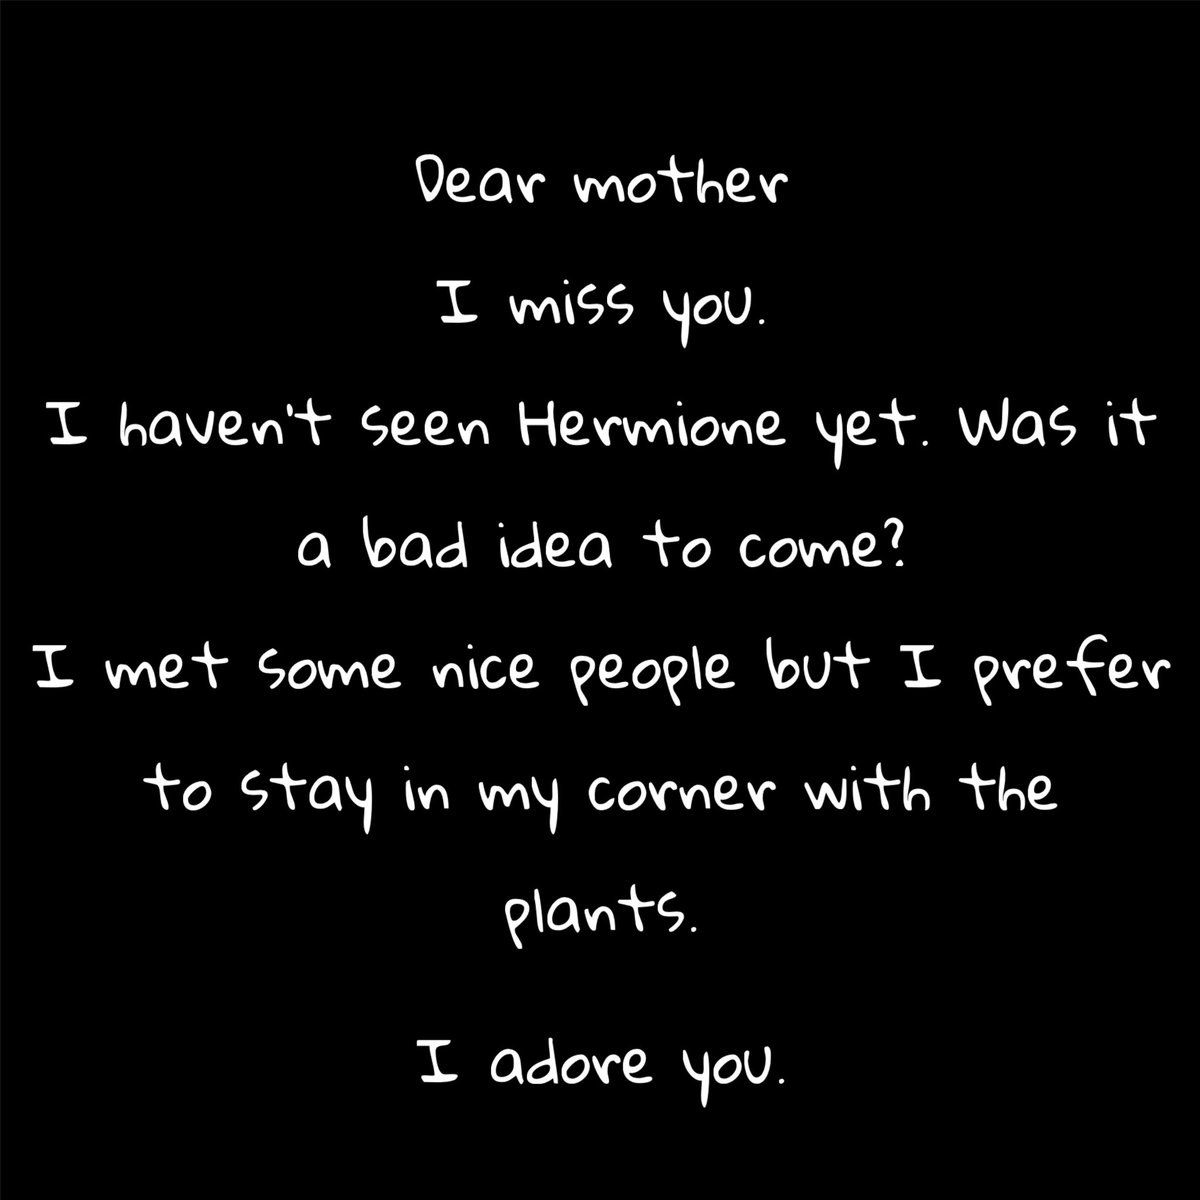 Dear mother
I miss you.
I haven't seen Hermione yet. Was it
a bad idea to come?
I met some nice people but I prefer
to stay in my corner with the
plants.
I adore you.